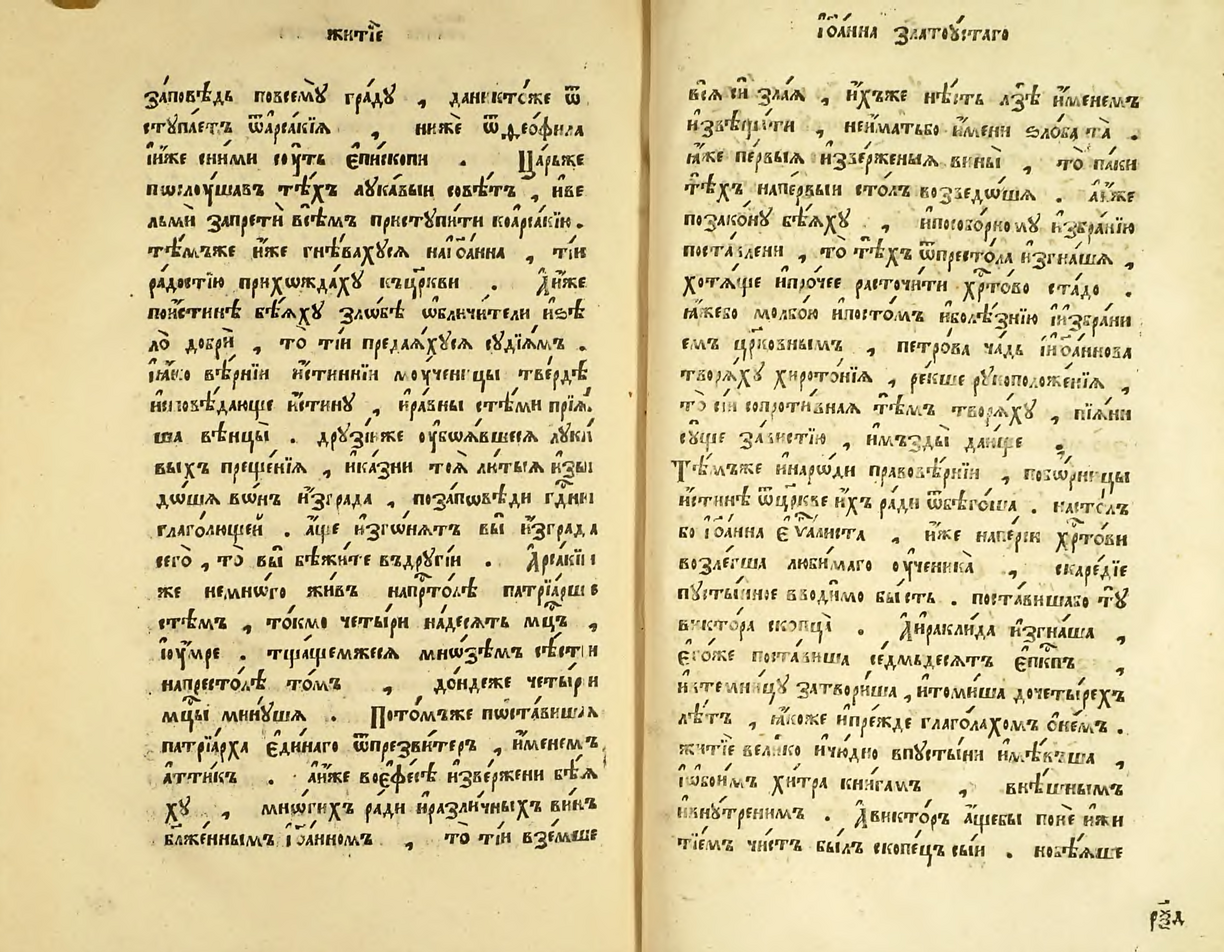 житїе
за́повѣдь повсемꙋ̀ гра́дꙋ , даникто́же ѿ
стꙋпаетъ ѿарсакїѧ , нижѐ ѿѳео́фила
и҆и҆́же сни́ми сꙋ́ть є҆пи́скопи . Царьже
послꙋ́шавъ тѣ́хъ лꙋка́выи совѣ́тъ , и҆ве
льмѝ запретѝ всѣ́мъ пристꙋпи́ти коарса́кїю .
тѣ́мъже и҆́же гнѣ́вахꙋсѧ наїѡа́нна , ті́и
ра́достїю прихѡжда́хꙋ къцр҃кви . А҆и҆́же
пои́стинѣ бѣ́ѧхꙋ ѕло́бѣ ѡ҆бличи́тели и҆ѕѣ
лѡ̀ добрѝ , то̀ ті́и предаѧ́хꙋсѧ сꙋдїѧ́мъ .
ꙗ҆́ко вѣ́рнїи и҆́стиннїи мꙋ́ченицы тве́рдѣ
и҆сповѣ́дающе и҆́стинꙋ , и҆ра́вны стѣ́ми прїѧ́
ша вѣнцы̀ . дрꙋзі́иже ᲂу҆боѧ́вшесѧ лꙋка́
выхъ преще́нїѧ , и҆ка́зни тоѧ̀ лю́тыѧ и҆зы
до́шѧ во́нъ и҆згра́да , позаповѣ́ди гд҇ни
глаго́лющей . а҆́ще и҆зго́нѧтъ вы̀ и҆згра́да
сего̀ , то̀ вы̀ бѣжи́те въдрꙋгі́и . А҆рса́кїи
же немно́го жи́въ напр҇то́лѣ патрїа́рше
стѣмъ , то́кмо четы́ри на́десѧть мц҇ъ ,
ї҆ᲂу́мре . тща́щемжесѧ мно́ѕѣмъ сѣ́сти
напресто́лѣ то́мъ , до́ндеже четы́ри
мц҇ы минꙋ́шѧ . Пото́мъже поста́вишѧ
патрїа́рха є҆ди́наго ѿпрезви́теръ , и҆́менемъ
а҆ттикъ . а҆и҆́же воє҆фе́сѣ и҆зве́ржени бѣ́ѧ
хꙋ , мно́гихъ ра́ди и҆разли́чныхъ ви́нъ
бл҃же́ннымъ їѡа́нномъ , то̀ ті́и взе́мше
ї҆ѡа́нна златоꙋ́стаго
всѧ̀ сїѝ ѕла́ѧ , и҆́хъже нѣ́сть лзѣ̀ и҆́менемъ
и҆звѣщати , неи́матьбо и҆́мени ѕло́ба та̀ .
ꙗ҆́же пе́рвыѧ и҆зве́рженыѧ вины̀ , то̀ па́ки
тѣ́хъ напе́рвыи сто́лъ возведо́шѧ . а҆и҆́же
позако́нꙋ бѣ́ѧхꙋ , и҆посо́борномꙋ и҆збра́нїю
поста́влени , то̀ тѣ́хъ ѿпресто́ла и҆згна́шѧ ,
хотѧ́ще и҆про́чее расточи́ти хр҇то́во ста́до .
ꙗ҆́жебо молбо́ю и҆посто́мъ и҆болѣ́знїю и҆и҆збра́ни
емъ цр҃ко́внымъ , петро́ва ча́дь и҆їѡа́ннова
творѧ́хꙋ хирото́нїѧ , ре́кше рꙋкоположе́нїѧ ,
то̀ сїѝ сопроти́внаѧ тѣ́мъ творѧ́хꙋ , пїѧ́ни
сꙋ́ще за́вистїю , и҆мъзды̀ даю́ще .
Тѣ́мъже и҆наро́ди правовѣ́рнїи , побо́рницы
и҆́стинѣ ѿцр҃кве и҆́хъ ра́ди ѿбѣго́ша . насто́лъ
бо їѡа́нна є҆ѵ҃а́листа , и҆́же напе́рси хр҇то́ви
возле́гша люби́маго ᲂу҆ченика̀ , скаре́дїе
пꙋсты́нное вводи́мо бы́сть . поста́вишабо тꙋ̀
ви́ктора скопца̀ . А҆ира́клида и҆згна́ша ,
є҆го́же поста́виша се́дмьдесѧтъ є҆пк҇пъ ,
и҆темни́цꙋ затвори́ша , и҆томи́ша дочеты́рехъ
лѣ́тъ , ꙗ҆́коже и҆пре́жде глаго́лахомъ ѻ҆не́мъ .
житїѐ вели́ко и҆чю́дно впꙋсты́ни и҆мѣ́вша ,
ї҆ѻбои́мъ хи́тра кни́гамъ , внѣ́шнымъ
и҆внꙋ́тренимъ . А҆ви́кторъ а҆́щебы понѐ и҆жи
тїе́мъ чи́стъ бы́лъ скопе́цъ сы́и . нобѣ́ѧше
рѯ҃д